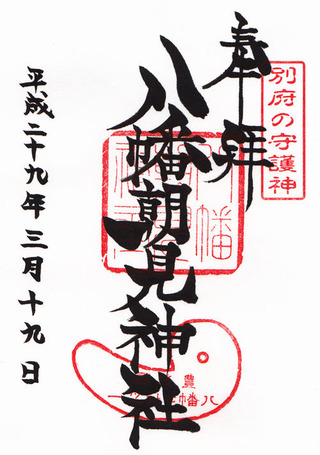 別府の守護神
奉拝
八幡朝見神社
平成二十九年三月十九日